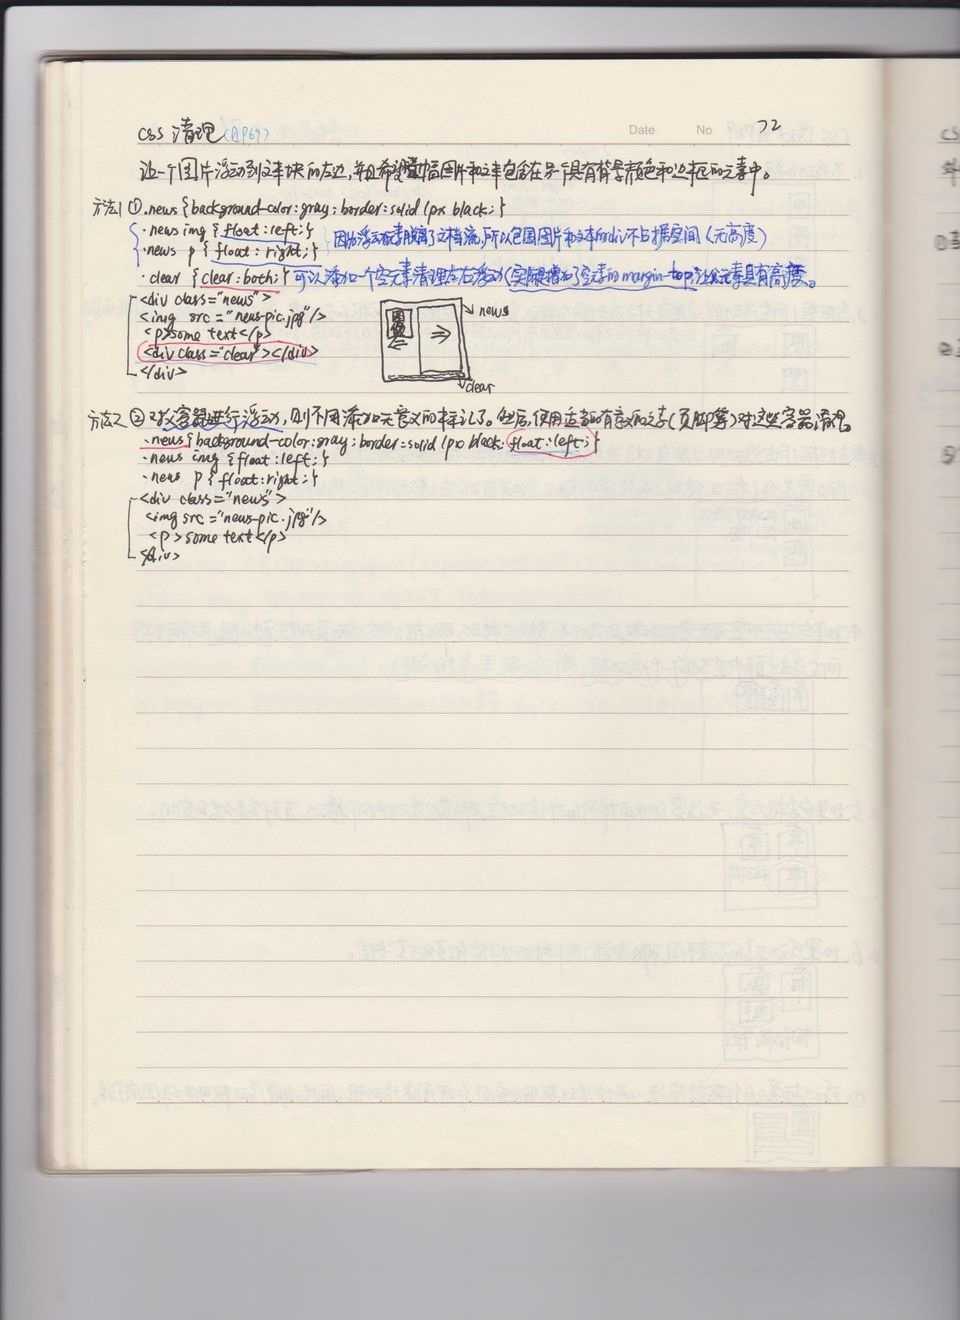 Date No 72
CSS 清理 (P69)
让一个图片浮动到文本块的左边,并且希望图片和文本包含在另一个具有背景颜色和边框的元素中。
方法1 ① .news {background-color:gray; border:solid 1px black;}
.news img {float:left;} 因为浮动元素脱离了文档流,所以包围图片和文本的div不占据空间(无高度)
.news p {float:right;}
.clear {clear:both;} 可以添加一个空元素清理左右浮动(实际增加了空元素的margin-top,让父元素具有高度。
<div class="news">
<img src="news-pic.jpg"/>
<p>some text</p>
<div class="clear"></div>
</div>
图像
news
clear
方法2 ② 对父容器进行浮动,则不用添加无意义的标记了。然后,使用适当的有意义的元素(页脚等)对这些容器清理。
.news{background-color:gray; border:solid 1px black; float:left;}
.news img {float:left;}
.news p {float:right;}
<div class="news">
<img src="news-pic.jpg"/>
<p>some text</p>
</div>